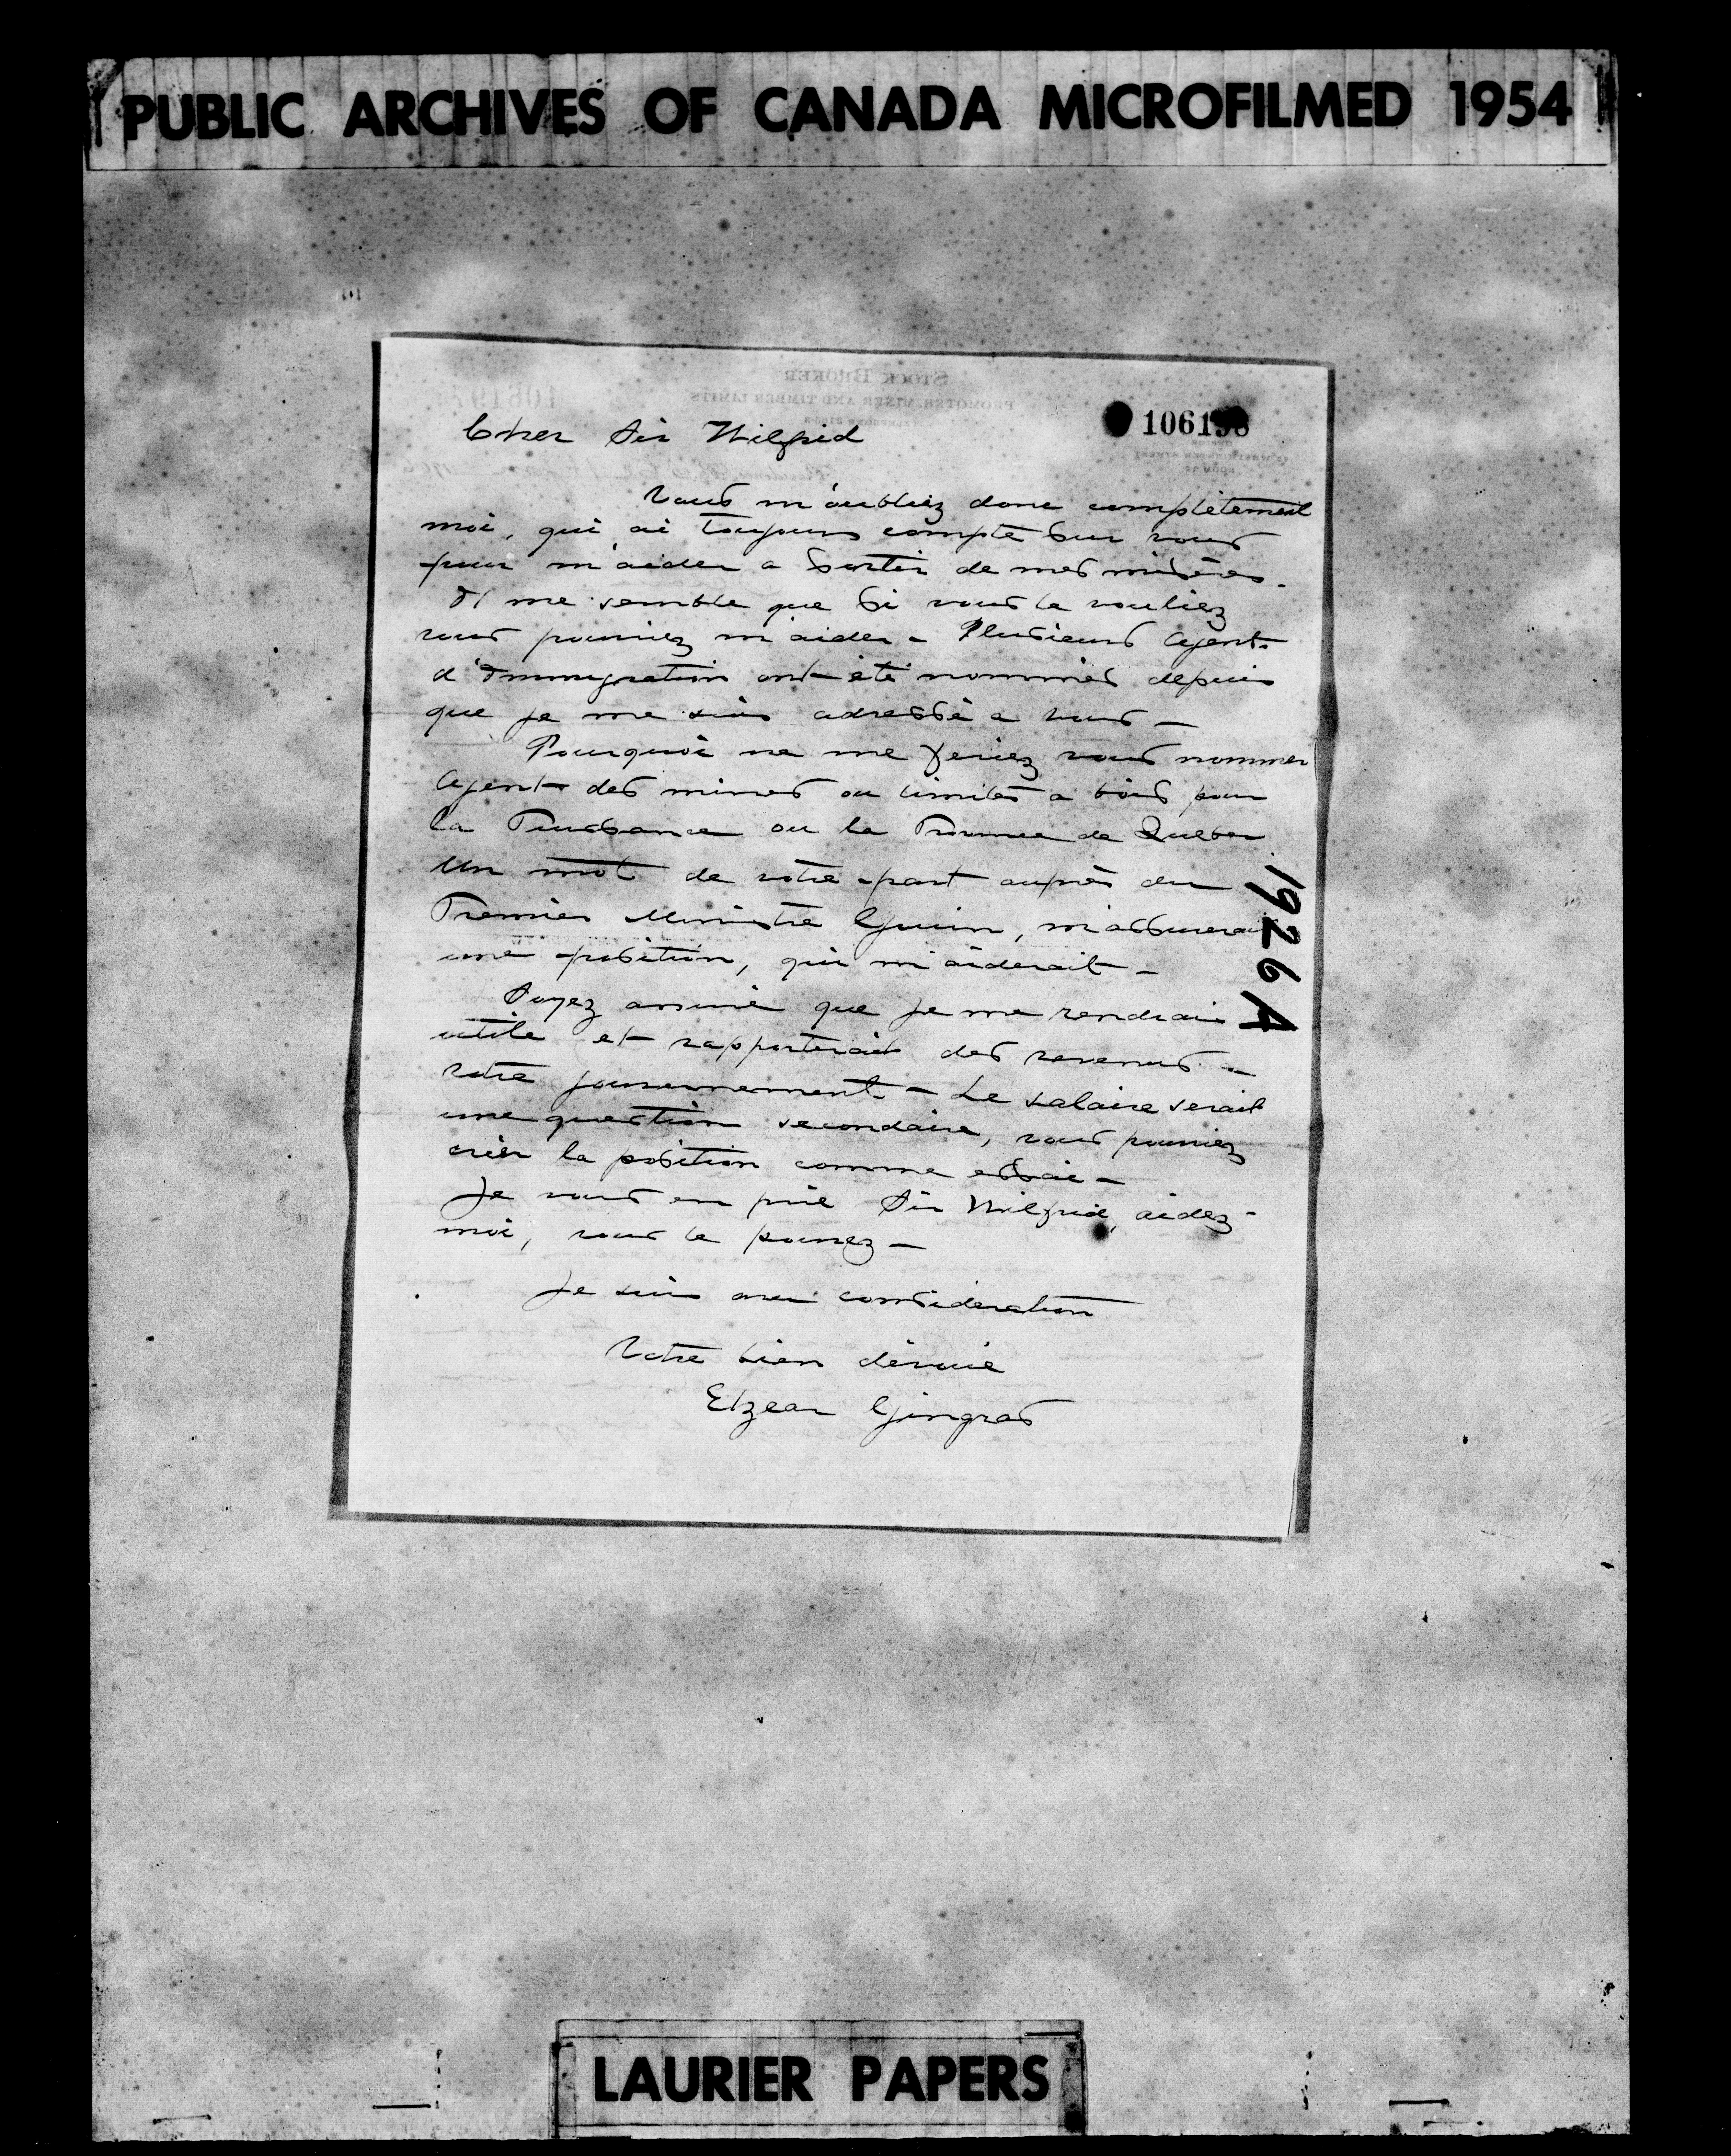 PUBLIC ARCHIVES OF CANADA MICROFILMED 1954
STOCK BROKER
PROMOTER, MINES AND TIMBER LIMITS
106198
Cher Sir Wilfrid
Vous m'oubliez donc complètement
moi, qui ai toujours compté sur vous
pour m'aider a sortir de mes misères.
Il me semble que si vous le vouliez
vous pouriez m'aider - Plusieurs agents
d'Immigration ont été nommés depuis
que je me suis adressé a vous -
Pourquoi ne me feriez vous nommer
Agent des mines ou limites a bois pour
la Puissance ou la Province de Quebec
Un mot de votre part auprès du
Premier Ministre Gouin, m'assurerait
une position, qui m'aiderait -
Soyez assuré que je me rendrais
utile et rapporterais des revenus a
votre gouvernement - Le salaire serait
une question secondaire, vous pouriez
créer la position comme essai -
Je vous en prie Sir Wilfrid, aidez-
moi, vous le pouvez -
Je suis avec consideration
Votre bien dévoué
Elzear Gingras
1926A
LAURIER PAPERS